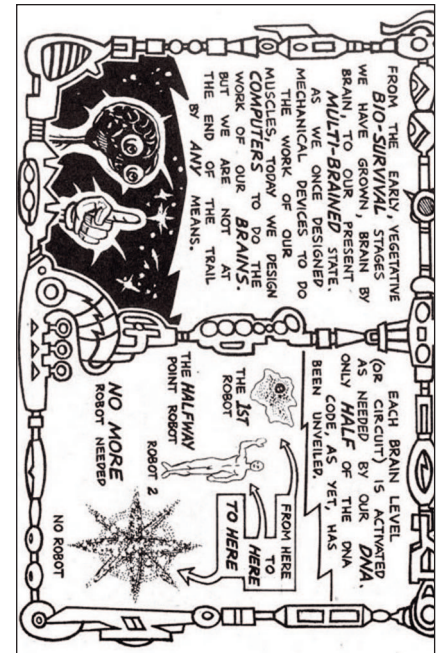 FROM THE EARLY, VEGETATIVE
BIO-SURVIVAL STAGES
WE HAVE GROWN, BRAIN BY
BRAIN, TO OUR PRESENT
MULTI-BRAINED STATE.
AS WE ONCE DESIGNED
MECHANICAL DEVICES TO DO
THE WORK OF OUR
MUSCLES, TODAY WE DESIGN
COMPUTERS TO DO THE
WORK OF OUR BRAINS.
BUT WE ARE NOT AT
THE END OF THE TRAIL
BY ANY MEANS.
EACH BRAIN LEVEL
(OR CIRCUIT) IS ACTIVATED
AS NEEDED BY OUR DNA.
ONLY HALF OF THE DNA
CODE, AS YET, HAS
BEEN UNVEILED.
THE 1ST
ROBOT
FROM HERE
TO
HERE
TO HERE
THE HALFWAY
POINT ROBOT
ROBOT 2
NO MORE
ROBOT NEEDED
NO ROBOT